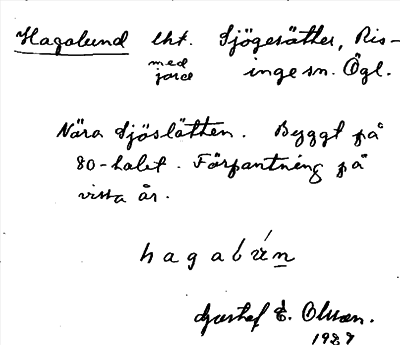 Hagalund lht. Sjögesätter, Ris-
med jord inge sn. Ögl.
Nära Sjöslätten. Byggt på
80-talet. Förpantning på
vissa år.
hagabún
Gustaf E. Olsson.
1927